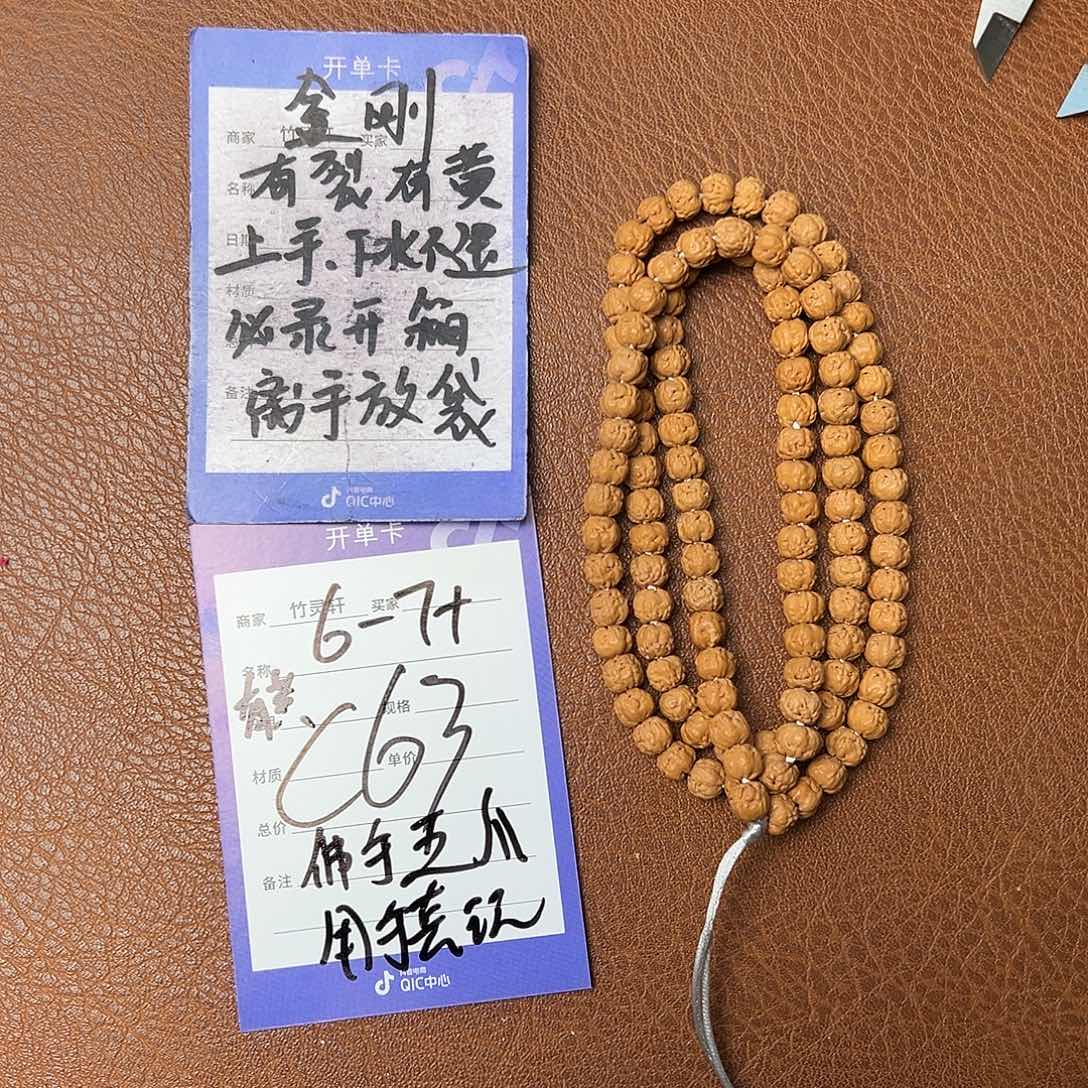 开单卡
金刚
商家 竹 买家
名称
有裂有黄
日期
上手、下水不退
材质
必录开箱
备注
离手放袋
抖音电商
QIC中心
开单卡
商家 竹灵轩 买家
6-7+
名称
规格
C63
材质 单价
总价
佛手
备注
用手
抖音电商
QIC中心